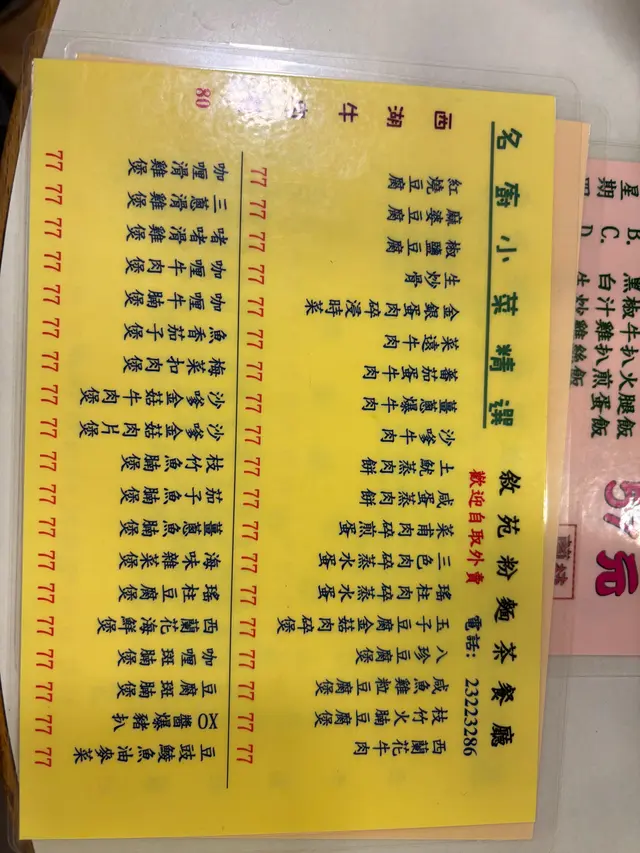 名廚小菜精選 敘苑粉麵茶餐廳
歡迎自取外賣 電話: 23223286
西湖牛
80
紅燒豆腐 77
麻婆豆腐 77
椒鹽豆腐 77
生炒骨 77
金銀蛋肉碎浸時菜 77
菜遠牛肉 77
蕃茄蛋牛肉 77
薑蔥爆牛肉 77
沙嗲牛肉 77
土魷蒸肉餅 77
咸蛋蒸肉餅 77
菜甫肉碎煎蛋 77
三色肉碎蒸水蛋 77
瑤柱肉碎蒸水蛋 77
玉子豆腐金菇肉碎煲 77
八珍豆腐煲 77
咸魚雞粒豆腐煲 77
枝竹火腩豆腐煲 77
西蘭花牛肉 77
咖喱滑雞煲 77
三蔥滑雞煲 77
啫啫滑雞煲 77
咖喱牛肉煲 77
咖喱牛腩煲 77
魚香茄子煲 77
梅菜扣肉煲 77
沙嗲金菇牛肉煲 77
沙嗲金菇肉片煲 77
枝竹魚腩煲 77
茄子魚腩煲 77
薑蔥魚腩煲 77
海味雜菜煲 77
瑤柱豆腐煲 77
西蘭花海鮮煲 77
咖喱斑腩煲 77
豆腐斑腩煲 77
XO醬爆豬扒 77
豆豉鯪魚油麥菜 77
星期
B. 黑椒牛扒火腿飯
C. 白汁雞扒煎蛋飯
D.
57元